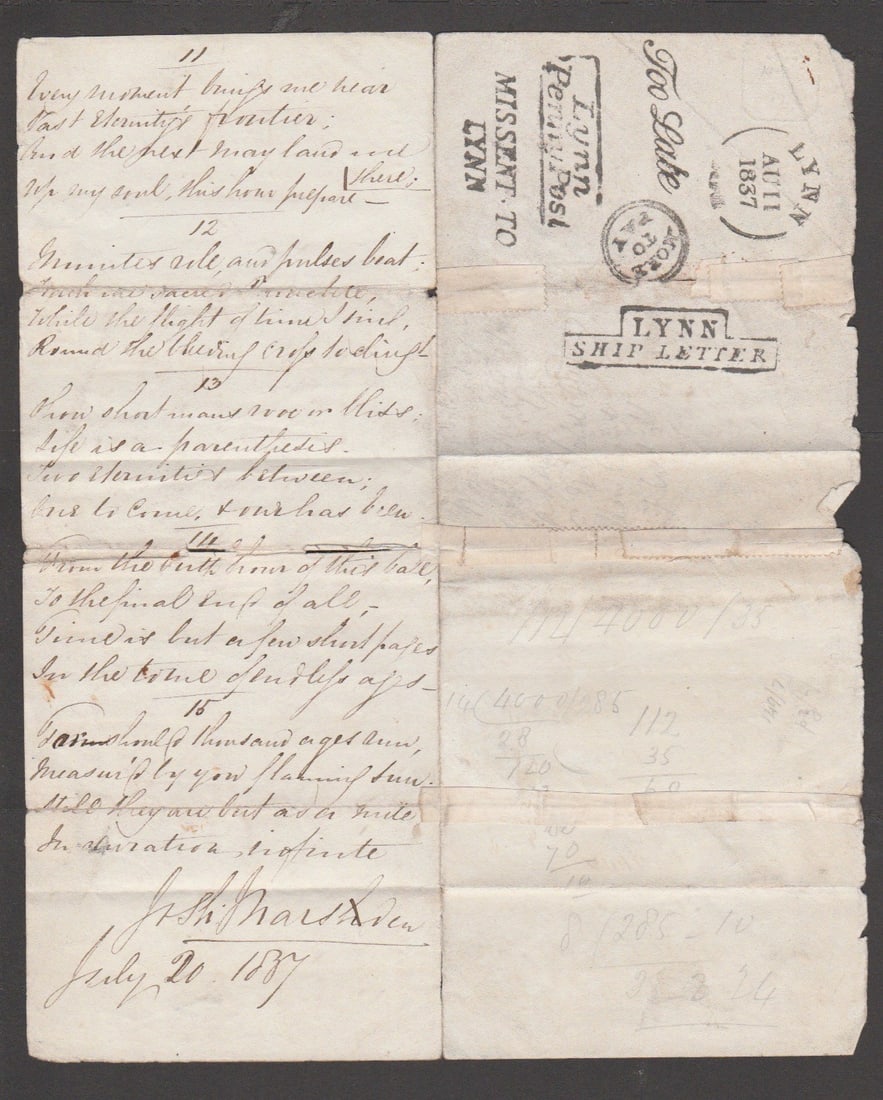 11
Every moment brings me near
Vast Eternity's frontier;
And the next may land me
there;
Up my soul, this hour prepare –
12
Minutes role, and pulses beat;
each one sacred
While the flight of time I sing,
Round the bleeding cross to cling
13
O how short mans woe or bliss;
Life is a parenthesis.
Two eternities between;
One to come, & one has been.
14
From the birth hour of this ball,
To the final end of all, –
Time is but a few short pages
In the tome of endless ages –
15
should thousand ages run,
Measur'd by yon flaming sun.
Still they are but as a mite
In duration infinite
Josh: Marsden
July 20. 1837
LYNN
AU 11
1837
Too Late
MORE
TO
PAY
Lynn
Penny Post
MISSENT·TO
LYNN
LYNN
SHIP LETTER
114/4000/35
14(4000/285
28
120
112
35
60
70
8/285-10